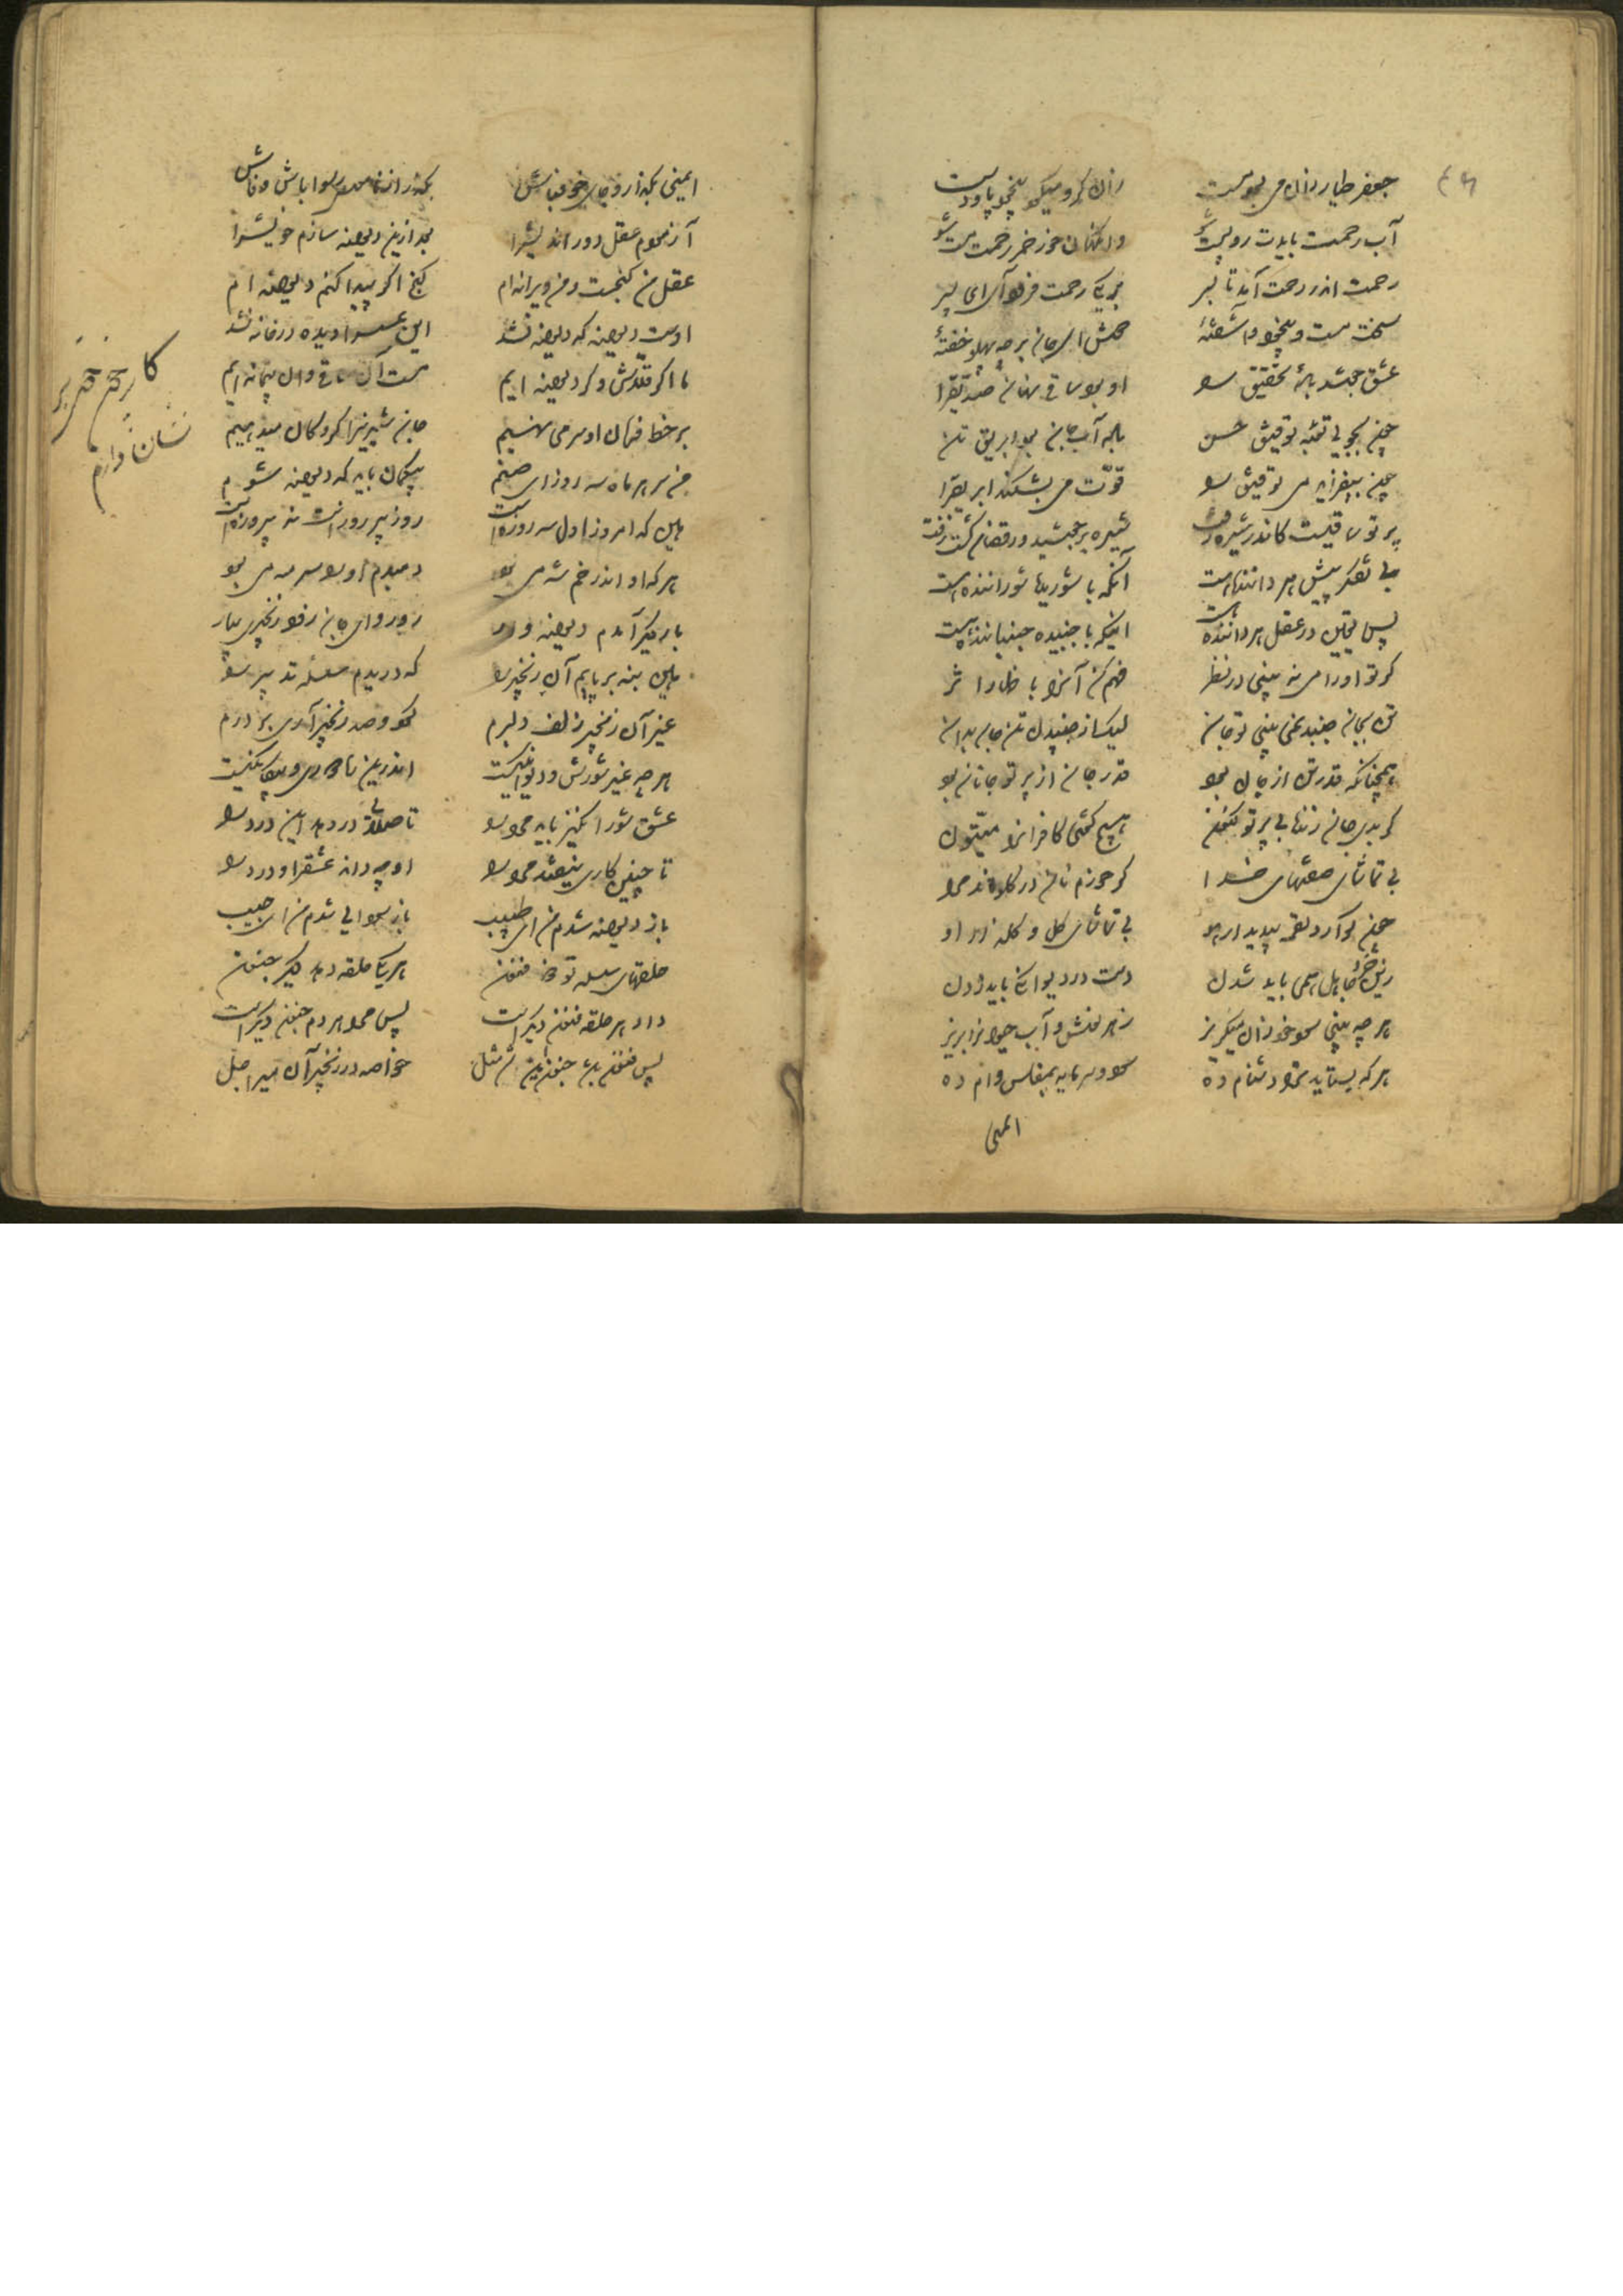 جعفر طیار زان می بوست مست    زان کرو میکو بیخود پا و دست
آب رحمت بایدت رو پست شو    وانگهان خور خمر رحمت مست شو
رحمت اندر رحمت آید تا بسر    بر یکی رحمت فرو مآ ای پسر
سخت مست و بیخود و آشفتهٔ    دوش ای جان بر چه پهلو خفتهٔ
عشق جوشد بادهٔ تحقیق را    او بود ساقی نهان صدیق را
چون بجویی تو بتوفیق حسن    باده آب جان بود ابریق تن
چون بیفزاید می توفیق را    قوت می بشکند ابریق را
پرتو ساقیست کاندر شیره رفت    شیره برجوشید و رقصان گشت و زفت
بی تفکر پیش هر داننده هست    آنکه با شوریده شوراننده هست
پس یقین در عقل هر داننده هست    اینکه با جنبیده جنباننده هست
گر تو او را می نه بینی در نظر    فهم کن آنرا باظهار اثر
تن بجان جنبد نمی بینی تو جان    لیک از جنبیدن تن جان بدان
همچنانکه قدر تن از جان بود    قدر جان از پرتو جانان بود
گر بدی جان زنده بی پرتو کنون    هیچ گفتی کافرانرا میتون
بی تماشای صفتهای خدا    گر خورم نان در گلو ماند مرا
چون گوارد لقمه بی دیدار او    بی تماشای گل و گلزار او
زین خرد جاهل همی باید شدن    دست در دیوانگی باید زدن
هر چه بینی سود خود زان میگریز    زهر نوش و آب حیوانرا بریز
هر که بستاید ترا دشنام ده    سود و سرمایه بمفلس وام ده
ایمنی
ایمنی بگذار و جای خوف باش    بگذر از ناموس و رسوا باش و فاش
آزمودم عقل دور اندیش را    بعد ازین دیوانه سازم خویش را
عقل من گنجست و من ویرانه‌ام    گنج اگر پیدا کنم دیوانه‌ام
اوست دیوانه که دیوانه نشد    این عسس را دیده در خانه نشد
ما اگر قلاش و گر دیوانه‌ایم    مست آن ساقی و آن پیمانه‌ایم
بر خط فرمان او سر می نهیم    جان شیرین را گروگان میدهیم
من سر هر ماه سه روز ای صنم    بیگمان باید که دیوانه شوم
هین که امروز اول سه روزه است    روز پیروزست نه پیروزه است
هر که او اندر غم شه می بود    دمبدم او را سر مه می بود
بار دیگر آمدم دیوانه وار    رو رو ای جان زود زنجیری بیار
هین بنه بر پایم آن زنجیر را    که دریدم سلسله تدبیر را
غیر آن زنجیر زلف دلبرم    گر دو صد زنجیر آری بر درم
هر چه غیر شورش و دیوانگیست    اندرین ره دوری و بیگانگیست
باز دیوانه شدم من ای طبیب    باز سودایی شدم من ای حبیب
حلقهای سلسله تو ذو فنون    هر یکی حلقه دهد دیگر جنون
داد هر حلقه فنون دیگرست    پس مرا هر دم جنون دیگرست
پس فنون باشد جنون این شد مثل    خاصه در زنجیر آن میر اجل